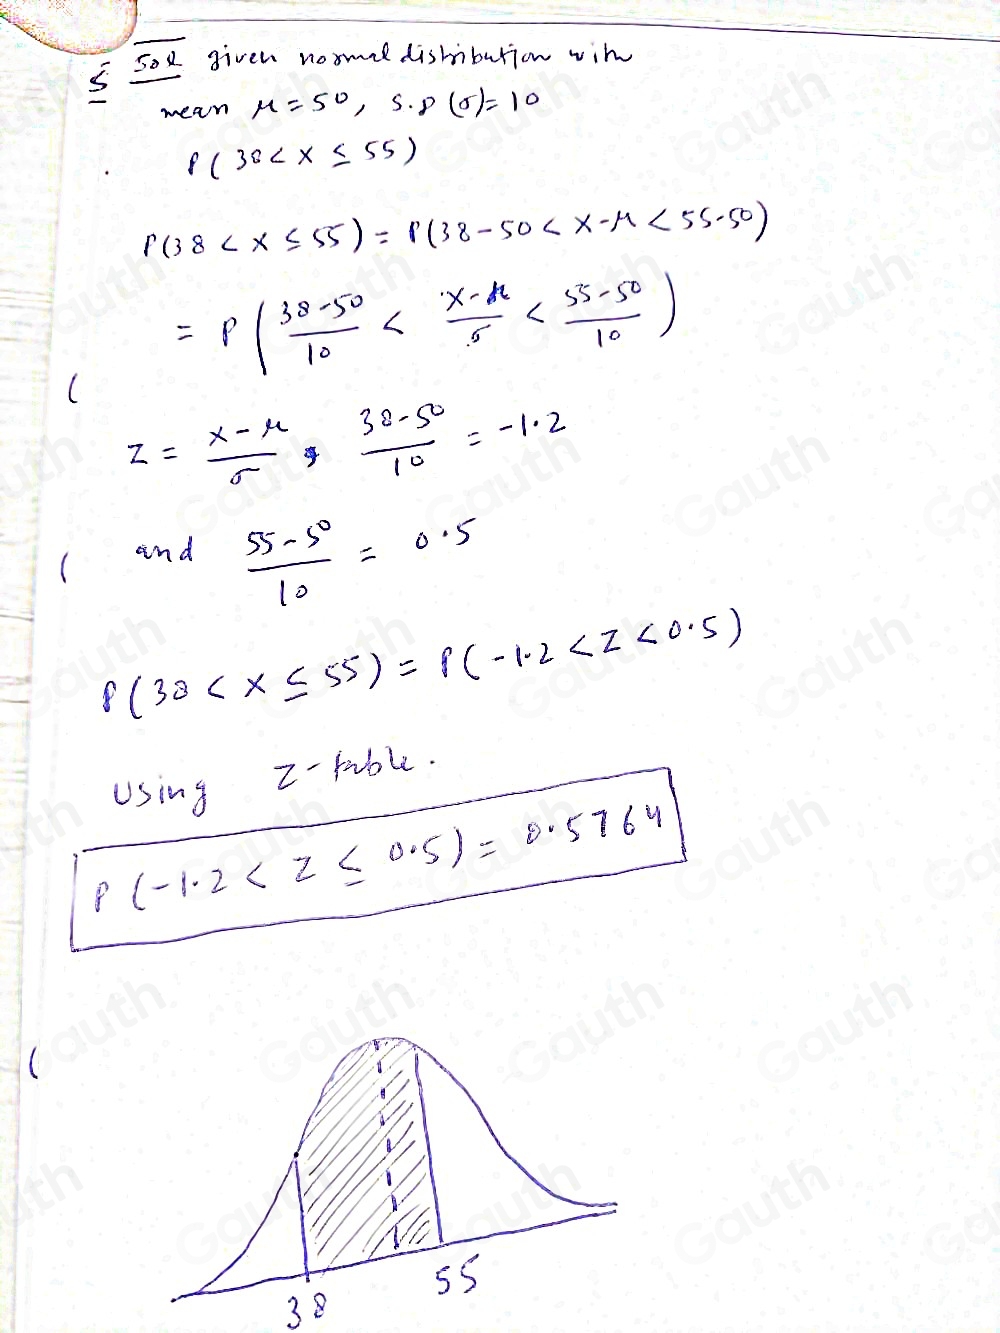 5 Sol given normal distribution with
mean μ = 50, S.D (σ) = 10
P(38 < X ≤ 55)
P(38 < X ≤ 55) = P(38-50 < X-μ < 55-50)
= P( (38-50)/10 < (X-μ)/σ < (55-50)/10 )
Z = (X-μ)/σ , (38-50)/10 = -1.2
and (55-50)/10 = 0.5
P(38 < X ≤ 55) = P(-1.2 < Z < 0.5)
Using Z-table.
P(-1.2 < Z ≤ 0.5) = 0.5764
38 55
Gauth